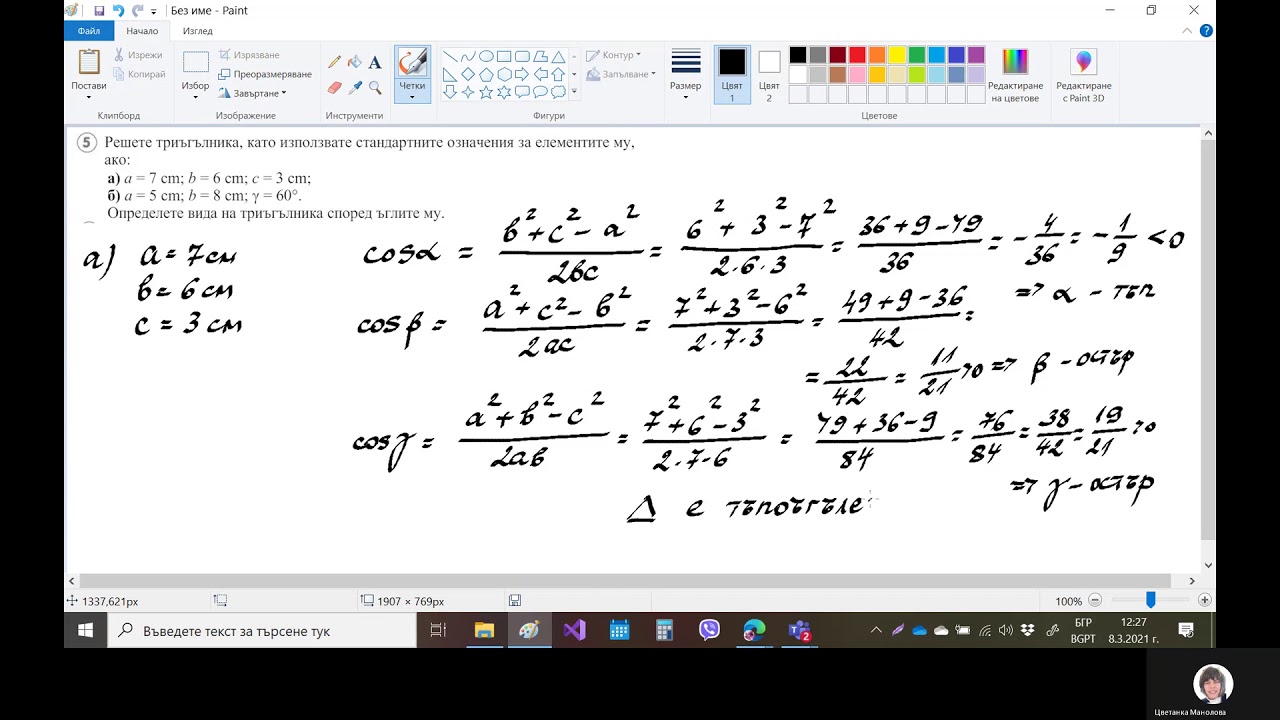 Без име - Paint
Файл Начало Изглед
Постави
Изрежи
Копирай
Клипборд
Избор
Изрязване
Преоразмеряване
Завъртане
Изображение
A
Инструменти
Четки
Контур
Запълване
Фигури
Размер
Цвят 1
Цвят 2
Цветове
Редактиране на цветове
Редактиране с Paint 3D
5 Решете триъгълника, като използвате стандартните означения за елементите му,
ако:
а) a = 7 cm; b = 6 cm; c = 3 cm;
б) a = 5 cm; b = 8 cm; γ = 60°.
Определете вида на триъгълника според ъглите му.
а) a = 7 см
в = 6 см
c = 3 см
cosα = (в² + c² - a²)/(2вc) = (6² + 3² - 7²)/(2·6·3) = (36 + 9 - 49)/36 = - 4/36 = - 1/9 < 0
=> α - тъп
cosβ = (a² + c² - в²)/(2ac) = (7² + 3² - 6²)/(2·7·3) = (49 + 9 - 36)/42 =
= 22/42 = 11/21 > 0 => β - остър
cosγ = (a² + в² - c²)/(2aв) = (7² + 6² - 3²)/(2·7·6) = (49 + 36 - 9)/84 = 76/84 = 38/42 = 19/21 > 0
=> γ - остър
Δ е тъпоъгъле
1337,621px
1907 × 769px
100%
Въведете текст за търсене тук
2
БГР
BGPT
12:27
8.3.2021 г.
Цветанка Манолова